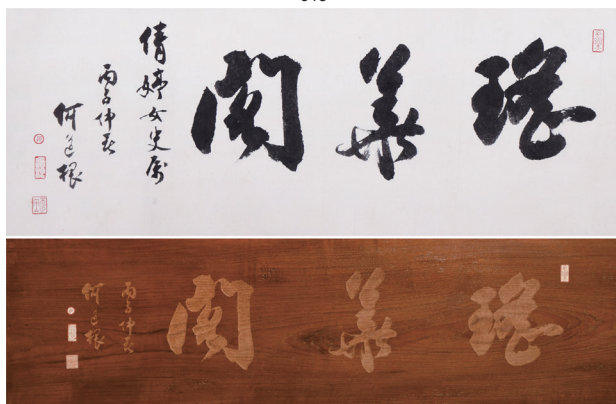 瑤華閣
倩婷女史屬
丙仲春
何道根
瑤華閣
丙仲春
何道根